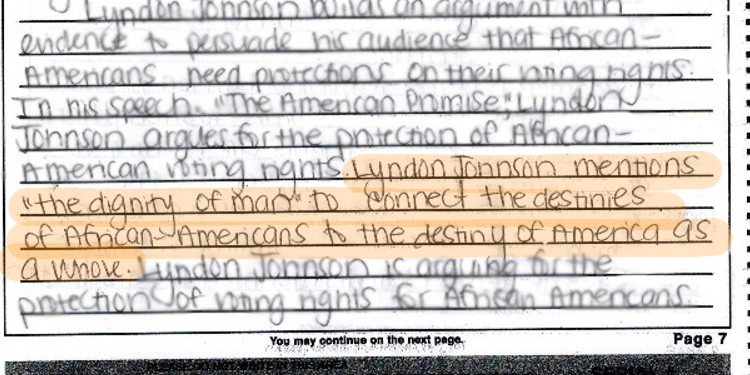 Lyndon Johnson builds an argument with
evidence to persuade his audience that African-
Americans need protections on their voting rights.
In his speech, "The American Promise," Lyndon
Johnson argues for the protection of African-
American voting rights. Lyndon Johnson mentions
"the dignity of man" to connect the destinies
of African-Americans to the destiny of America as
a whole. Lyndon Johnson is arguing for the
protection of voting rights for African Americans.
You may continue on the next page.
Page 7
PLEASE DO NOT WRITE IN THIS AREA